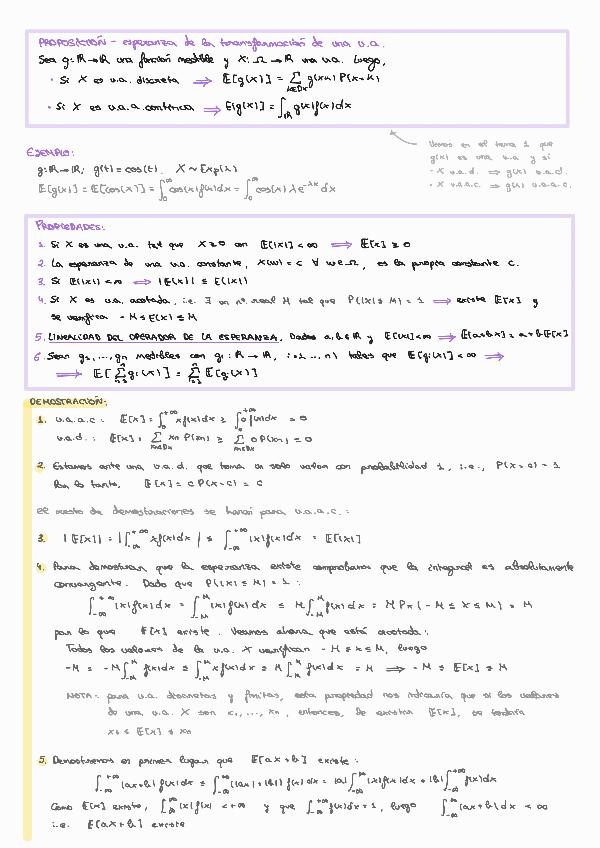 PROPOSICIÓN - esperanza de la transformación de una v.a.
Sea g: ℝ→ℝ una función medible y X: Ω → ℝ una v.a. Luego,
• Si X es v.a. discreta ⟹ E[g(X)] = Σ g(xₖ) P(X=xₖ)
• Si X es v.a. continua ⟹ E[g(X)] = ∫_ℝ g(x)f(x)dx
Vemos en el tema 1 que
g(X) es una v.a y si
- X v.a.d. ⟹ g(X) v.a.d.
- X v.a.a.c. ⟹ g(X) v.a.a.c.
EJEMPLO:
g: ℝ→ℝ; g(t) = cos(t). X ~ Exp(λ)
E[g(X)] = E[cos(X)] = ∫₀^∞ cos(x)f(x)dx = ∫₀^∞ cos(x) λe^{-λx} dx
PROPIEDADES:
1. Si X es una v.a. tal que X ≥ 0 con E[|X|] < ∞ ⟹ E[X] ≥ 0
2. La esperanza de una v.a. constante, X(ω) = c ∀ ω∈Ω, es la propia constante c.
3. Si E[|X|] < ∞ ⟹ |E[X]| ≤ E[|X|]
4. Si X es v.a. acotada, i.e. ∃ un nº real M tal que P(|X| ≤ M) = 1 ⟹ existe E[X] y
se verifica -M ≤ E[X] ≤ M
5. LINEALIDAD DEL OPERADOR DE LA ESPERANZA. Dados a,b∈ℝ y E[|X|]<∞ ⟹ E[a+bX] = a+bE[X]
6. Sean g₁,...,gₙ medibles con gᵢ: ℝ→ℝ, i=1...n) tales que E[gᵢ(X)] < ∞ ⟹
⟹ E[Σ gᵢ(X)] = Σ E[gᵢ(X)]
DEMOSTRACIÓN:
1. v.a.a.c: E[X] = ∫₀^{+∞} xf(x)dx ≥ ∫₀^{+∞} 0f(x)dx = 0
v.a.d.: E[X] = Σ xₙ P(xₙ) ≥ Σ 0 P(xₙ) = 0
2. Estamos ante una v.a.d. que toma un solo valor con probabilidad 1, i.e., P(X=c) = 1
Por lo tanto, E[X] = c P(X=c) = c
el resto de demostraciones se harán para v.a.a.c.:
3. |E[X]| = |∫_{-∞}^{+∞} xf(x)dx| ≤ ∫_{-∞}^{+∞} |x|f(x)dx = E[|X|]
4. Para demostrar que la esperanza existe comprobamos que la integral es absolutamente
convergente. Dado que P(|X| ≤ M) = 1:
∫_{-∞}^{+∞} |x|f(x)dx = ∫_{-M}^{M} |x|f(x)dx ≤ M∫_{-M}^{M} f(x)dx = M Pr(-M ≤ X ≤ M) = M
por lo que E[X] existe. Veamos ahora que está acotada:
Todos los valores de la v.a. X verifican -M ≤ x ≤ M, luego
-M = -M∫_{-M}^{M} f(x)dx ≤ ∫_{-M}^{M} xf(x)dx ≤ M∫_{-M}^{M} f(x)dx = M ⟹ -M ≤ E[X] ≤ M
NOTA: para v.a. discretas y finitas, esta propiedad nos indicaría que si los valores
de una v.a. X son x₁,..., xₙ, entonces, de existir E[X], se tendría
x₁ ≤ E[X] ≤ xₙ
5. Demostremos en primer lugar que E[aX+b] existe:
∫_{-∞}^{+∞} |ax+b|f(x)dx ≤ ∫_{-∞}^{+∞} (|ax|+|b|) f(x)dx = |a|∫_{-∞}^{+∞} |x|f(x)dx + |b|∫_{-∞}^{+∞} f(x)dx
Como E[X] existe, ∫_{-∞}^{+∞} |x|f(x) < +∞ y que ∫_{-∞}^{+∞} f(x)dx = 1, luego ∫_{-∞}^{+∞} |ax+b|dx < ∞
i.e. E[aX+b] existe